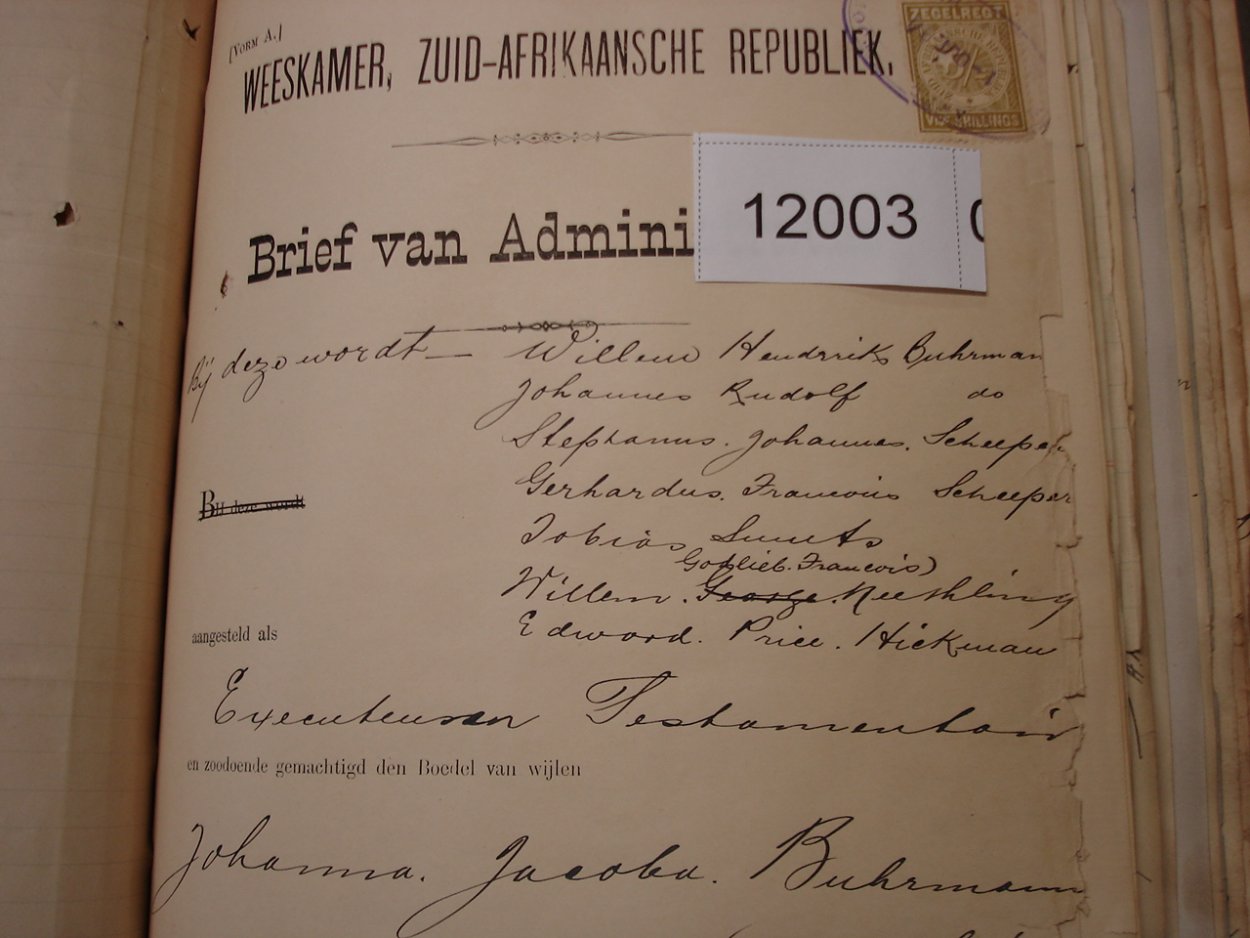 [Vorm A.]
WEESKAMER, ZUID-AFRIKAANSCHE REPUBLIEK,
ZEGELREGT
VIJF SHILLINGS
12003
Brief van Admini
Bij deze wordt — Willem Hendrik Buhrman
Johannes Rudolf do
Stephanus. Johannes. Scheeper
Gerhardus. Francois Scheeper
Bij deze wordt
Tobias Smuts
Gotlieb. Francois)
Willem. George. Neethling
aangesteld als
Edward. Price. Hickman
Executeuren Testamentair
en zoodoende gemachtigd den Boedel van wijlen
Johanna. Jacoba. Buhrmann